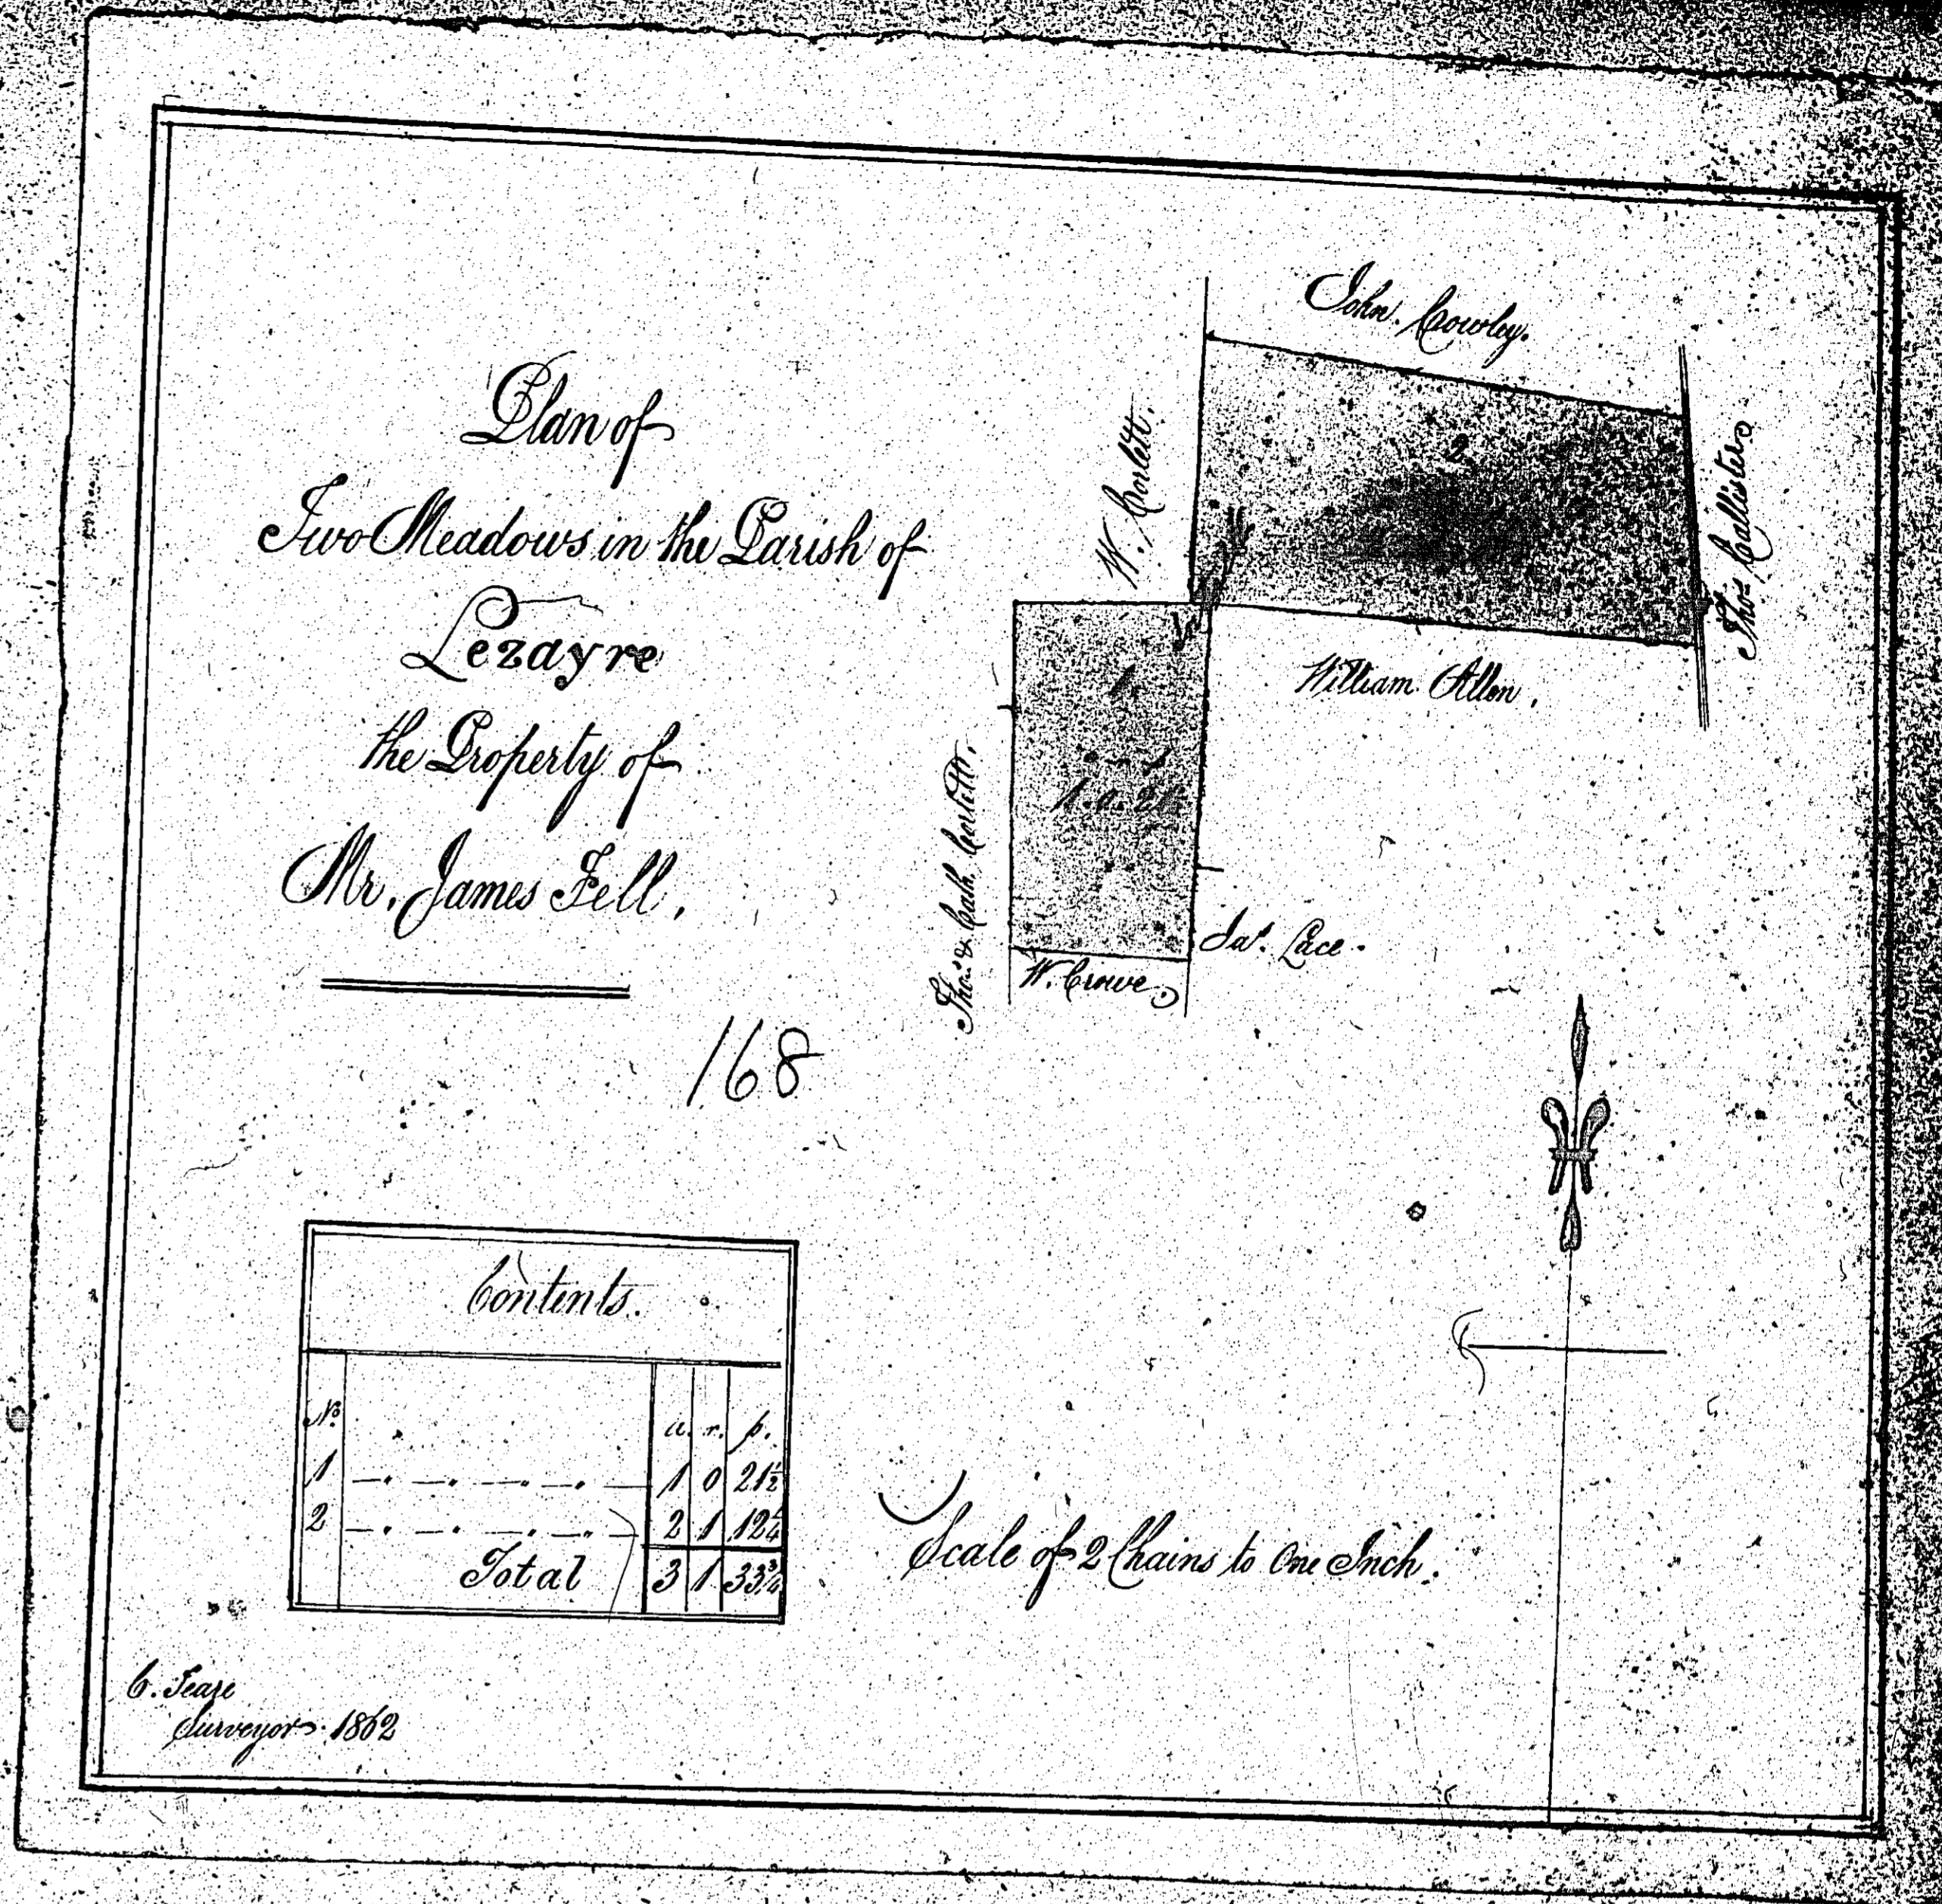 Plan of
Two Meadows in the Parish of
Lezayre
the Property of
Mr. James Fell.
168
John. Cowley.
W. Corlett.
2
Thos. Callister
William Allen.
1.
1.0.21½
Thos. & Cath. Corlett.
Jas. Lace.
W. Crowe
Contents.
No. a. r. p.
1 1 0 21½
2 2 1 12¼
Total 3 1 33¾
Scale of 2 Chains to One Inch.
C. Feare
Surveyor. 1862